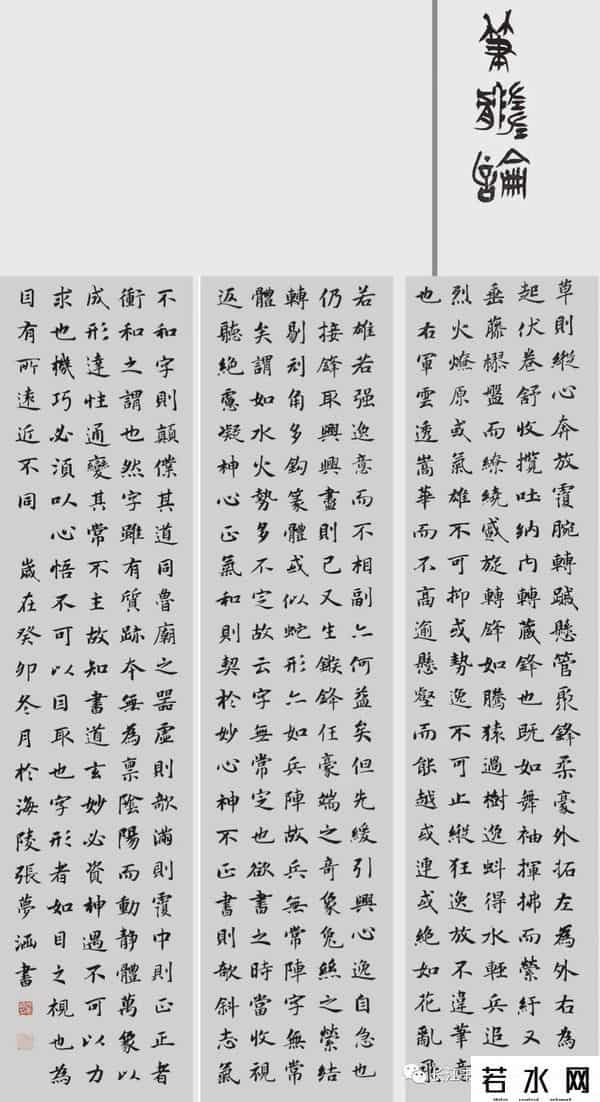 筆髓論
草則縱心奔放覆腕轉蹴懸管聚鋒柔豪外拓左為外右為
起伏卷舒收攬吐納內轉蔵鋒也既如舞袖揮拂而縈紆又
垂藤樛盤而繚繞蹙旋轉鋒如騰猿過樹逸蚪得水輕兵追
烈火燎原或氣雄不可抑或勢逸不可止縱狂逸放不違筆意
也右軍雲透嵩華而不高逾懸壑而能越或連或絕如花亂飛
若雄若强逸意而不相副亦何益矣但先緩引興心逸自急也
仍接鋒取興興盡則已又生鏃鋒任豪端之奇象兔絲之縈結
轉剔刓角多鈎篆體或似蛇形亦如兵陣故兵無常陣字無常
體矣謂如水火勢多不定故云字無常定也欲書之時當收視
返聽絕慮凝神心正氣和則契於妙心神不正書則欹斜志氣
不和字則顛僕其道同魯廟之器虛則欹滿則覆中則正正者
衝和之謂也然字雖有質跡本無為禀陰陽而動靜體萬象以
成形達性通變其常不主故知書道玄妙必資神遇不可以力
求也機巧必須以心悟不可以目取也字形者如目之視也為
目有所遠近不同 歲在癸卯冬月於海陵張夢涵書
长江
若水网